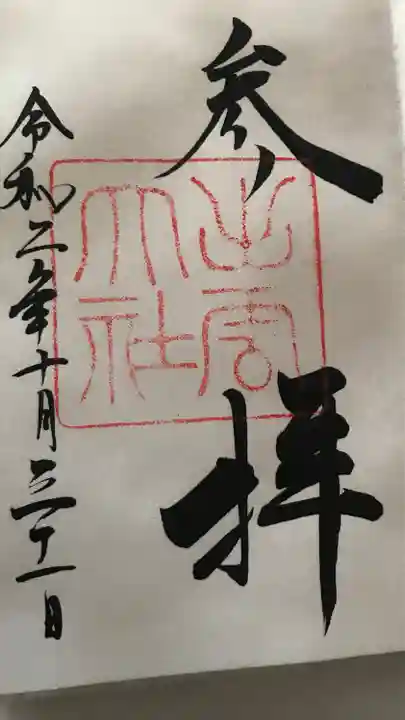 参拝
出雲大社
令和二年十月三十一日